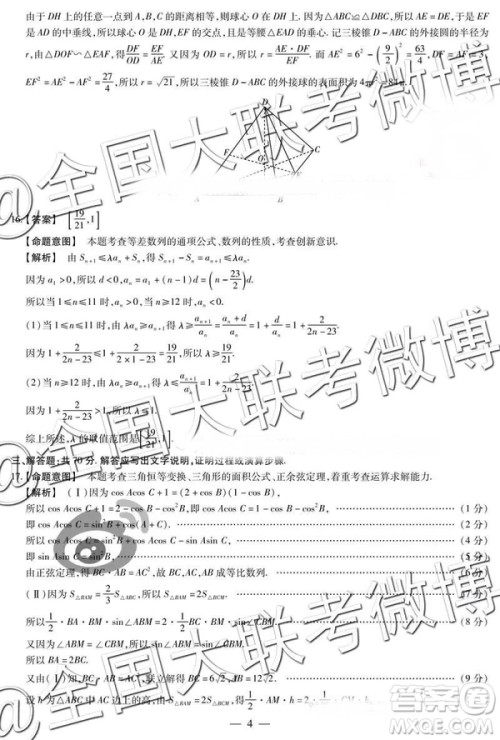 由于 DH 上的任意一点到 A,B,C 的距离相等,则球心 O 在 DH 上. 因为△ABC≌△DBC,所以 AE=DE,于是 EF
是 AD 的中垂线,所以球心 O 是 DH,EF 的交点,且是等腰△EAD 的垂心. 记三棱锥 D-ABC 的外接球的半径为
r,由△DOF∽△EAF,得 DF/OD = EF/AE. 又因为 OD=r,所以 r = AE·DF/EF. 而 AE²=6²-(9/2)²=63/4, DF²=
EF²=AE²-AF²=27/4,所以 r=√21,所以三棱锥 D-ABC 的外接球的表面积为 4πr²=84π.
D
F
O
C
A
B
16.【答案】 [19/21,1]
【命题意图】 本题考查等差数列的通项公式、数列的性质,考查创新意识.
【解析】 由 Sₙ₊₁≤λaₙ+Sₙ,得 Sₙ₊₁-Sₙ=aₙ₊₁≤λaₙ.
因为 a₁>0,所以 d<0,aₙ=a₁+(n-1)d=(n-23/2)d.
所以当 1≤n≤11 时,aₙ>0,当 n≥12 时,aₙ<0.
(1)当 1≤n≤11 时,由 aₙ₊₁≤λaₙ 得 λ≥aₙ₊₁/aₙ=(aₙ+d)/aₙ=1+d/aₙ=1+2/(2n-23).
因为 1+2/(2n-23)≤1+2/(2×1-23)=19/21,所以 λ≥19/21.
(2)当 n≥12 时,由 aₙ₊₁≤λaₙ 得 λ≤aₙ₊₁/aₙ=1+2/(2n-23).
因为 1+2/(2n-23)>1,所以 λ≤1.
综上所述,λ 的取值范围是[19/21,1].
三、解答题:共 70 分. 解答应写出文字说明,证明过程或演算步骤.
17.【命题意图】 本题考查三角恒等变换、三角形的面积公式、正余弦定理,着重考查运算求解能力.
【解析】 (Ⅰ)因为 cos Acos C+1=(2+cos B)(1-cos B),
所以 cos Acos C+1=2-cos B-cos²B,即 cos Acos C=1-cos B-cos²B, (1 分)
即 cos Acos C=sin²B+cos(A+C), (2 分)
所以 cos Acos C=sin²B+cos Acos C-sin Asin C, (4 分)
即 sin Asin C=sin²B, (5 分)
由正弦定理,得 BC·AB=AC²,故 BC,AC,AB 成等比数列. (6 分)
所以
又因为∠ABM=∠CBM,所以 sin∠ABM=sin∠CBM,
所以 BA=2BC. (8 分)
(9 分)
— 4 —
@全国大联考微博
@全国大联考微博
答案圈